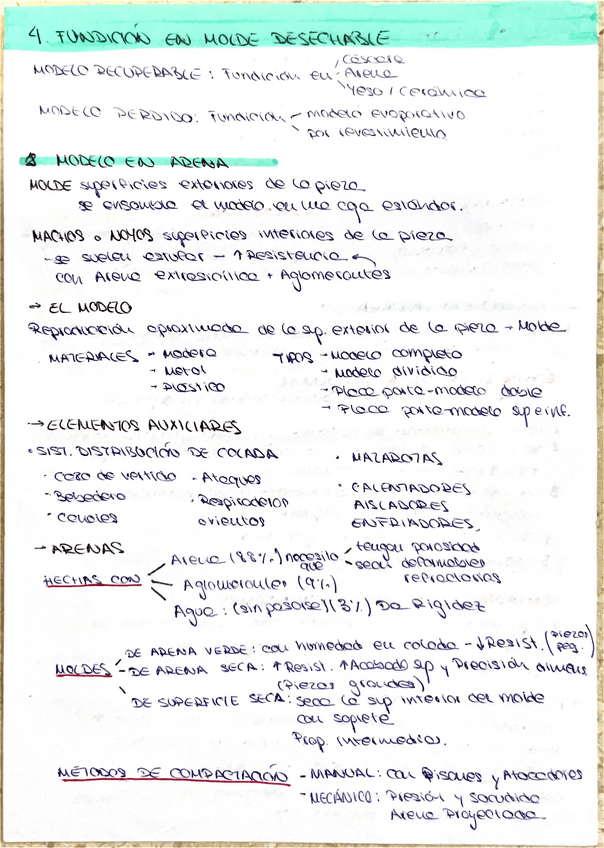 4. FUNDICIÓN EN MOLDE DESECHABLE
MODELO RECUPERABLE: Fundición en
Cáscara
Arena
Yeso / Cerámica
MODELO PERDIDO. Fundición
modelo evaporativo
por revestimiento
MODELO EN ARENA
MOLDE superficies exteriores de la pieza
se ensambla el modelo en una caja estándar.
MACHOS o NOYOS superficies interiores de la pieza
- se suelen estufar - ↑ Resistencia
con Arena extrasilílica + Aglomerantes
→ EL MODELO
Reproducción aproximada de la sup. exterior de la pieza → Molde
MATERIALES - Madera
- Metal
- Plástico
TIPOS - Modelo completo
- Modelo dividido
- Placa porta-modelo doble
- Placa porta-modelo sup e inf.
→ ELEMENTOS AUXILIARES
• SIST. DISTRIBUCIÓN DE COLADA
· Cazo de vertido
· Bebedero
· Canales
· Ataques
· Respiraderos
orientos
• MAZAROTAS
• CALENTADORES
AISLADORES
ENFRIADORES.
→ ARENAS
HECHAS CON
Arena (88%) necesito que
- tengan porosidad
- sean deformables
refractarias
Aglomerantes (9%)
Agua: (sin pasarse) (3%) Da Rigidez
MOLDES
DE ARENA VERDE: con humedad en colada - ↓ Resist. (piezas peq.)
- DE ARENA SECA: ↑ Resist. ↑ Acabado sp y Precisión dimens
(Piezas grandes)
DE SUPERFICIE SECA: seca la sup interior del molde
con soplete
Prop. intermedias.
METODOS DE COMPACTACIÓN - MANUAL: con Pisones y Atacadores
- MECÁNICO: Presión y sacudida
Arena Proyectada